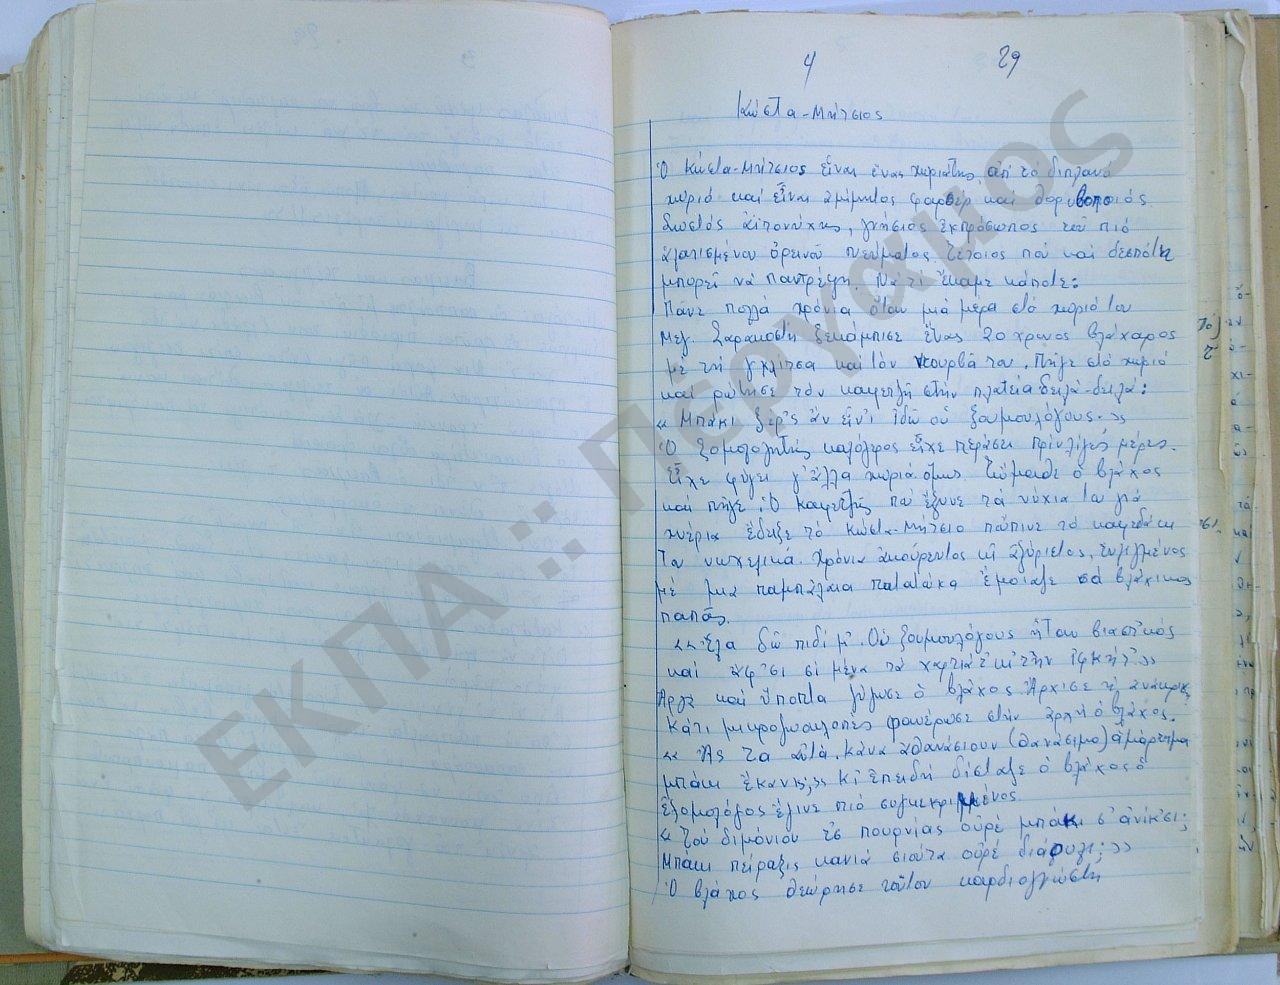 4 29
Κώστα-Μήτσιος
Ὁ Κώστα-Μήτσιος εἶναι ἕνας χωριάτης ἀπ' τό διπλανό
χωριό καί εἶναι ἀμίμητος φαφέρ καί θορυβοποιός.
Σωστός ἀϊτονύχης, γνήσιος ἐκπρόσωπος τοῦ πιό
ἁλατισμένου ὀρεινοῦ πνεύματος. Τέτοιος πού καί δεσπότη
μπορεῖ νά παντρέψῃ. Νά τί ἔκαμε κάποτε:
Πᾶνε πολλά χρόνια ὅταν μιά μέρα στό χωριό του
Μεγ. Σαρακοστή ξεκάμπισε ἕνας 20χρονος βλάχαρος
μέ τή γκλίτσα καί τόν τουρβᾶ του. Πῆγε στό χωριό
καί ρώτησε τόν καφετζῆ στήν πλατεῖα δειλά-δειλά:
« Μπάκι ξέρ'ς ἄν εἶν'ι ἰδῶ οὑ ξουμουλόγους. »
Ὁ ξομολογητής καλόγερος εἶχε περάσει πρίν λίγες μέρες.
Εἶχε φύγει γι' ἄλλα χωριά ὅμως. Τὤμαθε ὁ βλάχος
καί πῆγε. Ὁ καφετζής πού ἔξυνε τά νύχια του γιά
χωρατά ἔδειξε τό Κώστα-Μήτσιο πὤπινε τό καφεδάκι
του νωχελικά. Χρόνια ἀκούρευτος κι ἀξύριστος, τυλιγμένος
μέ μια παμπάλαια πατατούκα ἔμοιαζε σά βλάχικος
παπᾶς.
«Ἔλα δῶ πιδί μ'. Οὑ ξουμουλόγους ἦταν βιαστ'κός
καί ἄφ'σι σί μένα τά χαρτιά τ' κί τήν ἰφκή τ'»
Ἀργά καί ὕποπτα ζύγωσε ὁ βλάχος. Ἄρχισε ἡ ἀνάκριση.
Κάτι μικροζωοκλοπές φανέρωσε στήν ἀρχή ὁ βλάχος.
« Ἄς τα αὐτά. Κάνα ἀθανάσιουν (θανάσιμο) ἁμάρτημα
μπάκι ἔκανις;» Κι ἐπειδή δίσταζε ὁ βλάχος ὁ
ἐξομολόγος ἔγινε πιό συγκεκριμμένος.
« Τοῦ διμόνιου τ'ς πουρνίας οὐρέ μπάκι σ' ἀνίκ'σι;
Μπάκι πείραξις κανιά σιούτα οὐρέ διάουλι;»
Ὁ βλάχος θεώρησε τοῦτον καρδιογνώστη
ΕΚΠΑ :: Πέργαμος